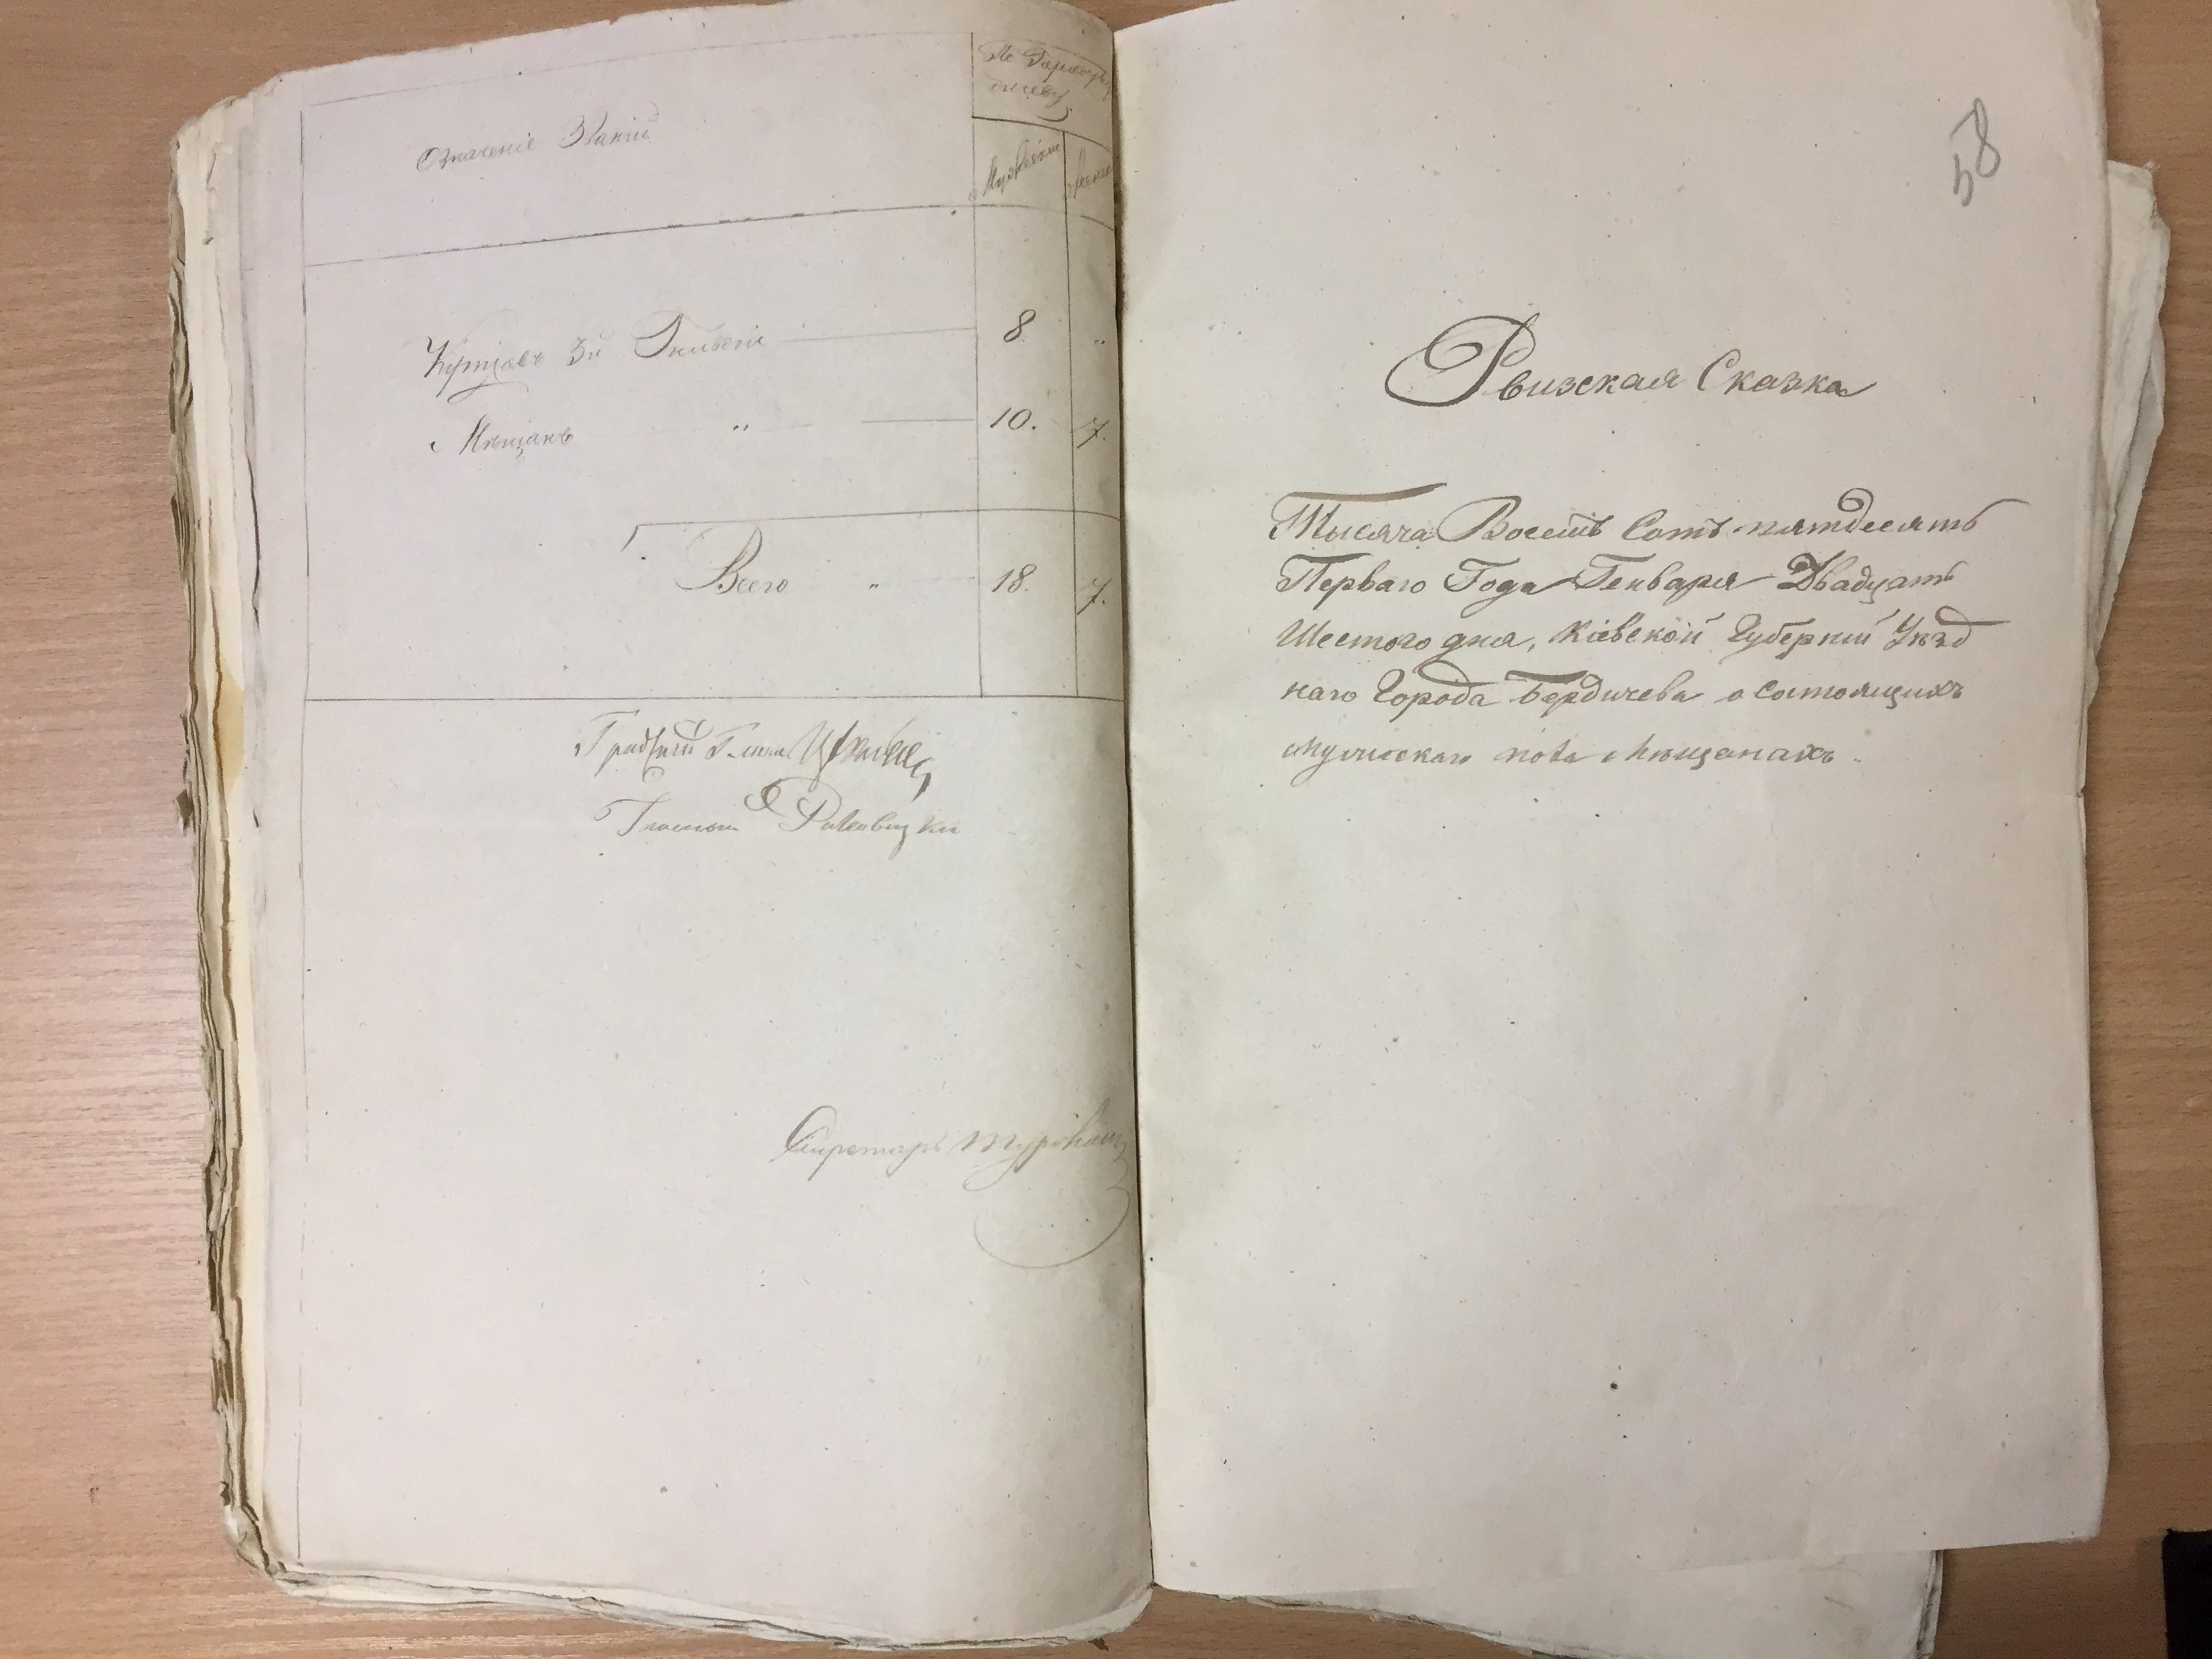 Означеніе Званій
По
Мужески
Купцовъ 3й Гильдіи 8. „
Мѣщанъ „ 10. 7.
Всего „ 18. 7.
Градскій Глава
Секретарь
58
Рвизская Сказка
Тысяча Восемь Сотъ пятдесятъ
Перваго Года Генваря Двадцатъ
Шестого дня, Кіевской Губерніи Уѣзд
наго Города Бердичева о состоящихъ
мужескаго пола Мѣщанахъ.